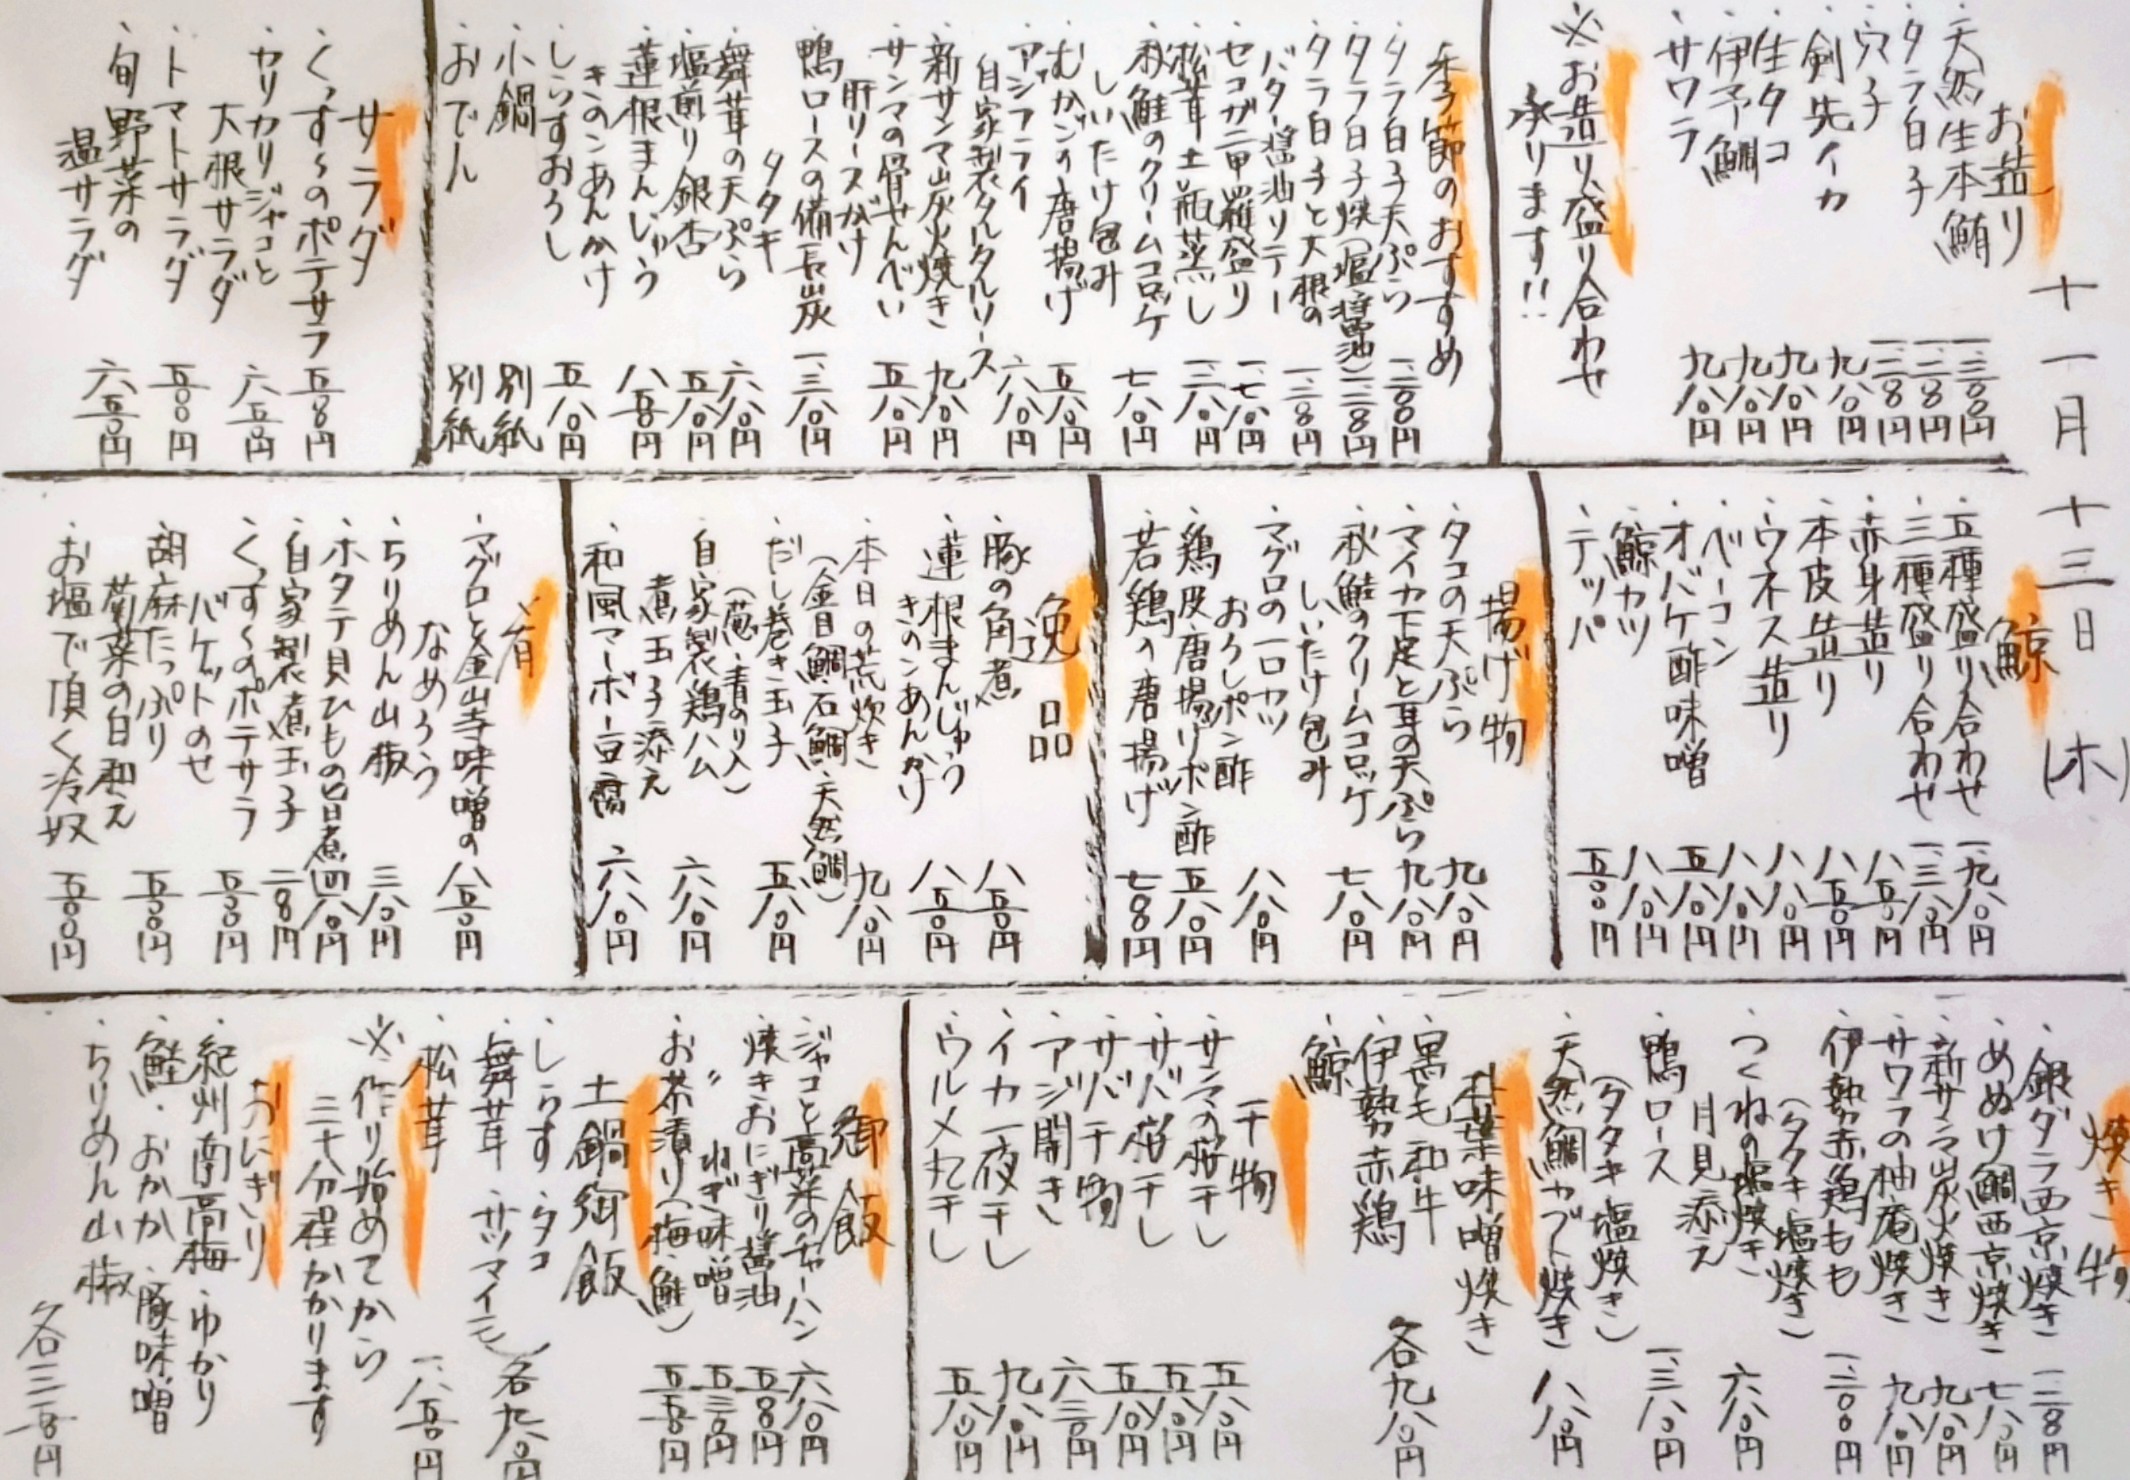 十一月十三日(木)
お造り
・天然生本鮪 一、三〇〇円
・タラ白子 一、二八〇円
・穴子 一、二八〇円
・剣先イカ 九八〇円
・生タコ 九八〇円
・伊予鯛 九八〇円
・サワラ 九八〇円
※お造り盛り合わせ
承ります!!
季節のおすすめ
・タラ白子天ぷら 一、二〇〇円
・タラ白子焼(塩・醤油) 一、二八〇円
・タラ白子と大根の
バター醤油ソテー 一、二八〇円
・セコガニ甲羅盛り 一、七八〇円
・松茸土瓶蒸し 一、二八〇円
・秋鮭のクリームコロッケ
しいたけ包み 七八〇円
・むかごの唐揚げ 五八〇円
・アジフライ
自家製タルタルソース 六八〇円
・新サンマ炭火焼き 九八〇円
・サンマの骨せんべい
肝ソースがけ 五八〇円
・鴨ロースの備長炭
タタキ 一、三八〇円
・舞茸の天ぷら 六八〇円
・塩煎り銀杏 五八〇円
・蓮根まんじゅう
きのこあんかけ 八五〇円
・しらすおろし 五八〇円
・小鍋 別紙
・おでん 別紙
サラダ
・くっすぅのポテサラ 五〇〇円
・カリカリジャコと
大根サラダ 六五〇円
・トマトサラダ 五〇〇円
・旬野菜の
温サラダ 六五〇円
鯨
・五種盛り合わせ 一、九八〇円
・三種盛り合わせ 一、三八〇円
・赤身造り 八五〇円
・本皮造り 八五〇円
・ウネス造り 八八〇円
・ベーコン 八八〇円
・オバケ酢味噌 五八〇円
・鯨カツ 八八〇円
・テッパ 五〇〇円
揚げ物
・タコの天ぷら 九八〇円
・マイカ下足と耳の天ぷら 九八〇円
・秋鮭のクリームコロッケ
しいたけ包み 七八〇円
・マグロの一口カツ
おろしポン酢 八八〇円
・鶏皮唐揚げポン酢 五八〇円
・若鶏の唐揚げ 七八〇円
逸品
・豚の角煮 八五〇円
・蓮根まんじゅう
きのこあんかけ 八五〇円
・本日の荒炊き 九八〇円
(金目鯛・石鯛・天然鯛)
・だし巻き玉子 五八〇円
(葱・青のり入)
・自家製鶏ハム
煮玉子添え 六八〇円
・和風マーボー豆腐 六八〇円
〆肴
・マグロと金山寺味噌の
なめろう 八五〇円
・ちりめん山椒 三八〇円
・ホタテ貝ひもの旨煮 四八〇円
・自家製煮玉子 二八〇円
・くっすぅのポテサラ
バケットのせ 五〇〇円
・胡麻たっぷり
菊菜の白和え 五〇〇円
・お塩で頂く冷奴 五〇〇円
焼き物
・銀ダラ西京焼き 一、二八〇円
・めぬけ鯛西京焼き 七八〇円
・新サンマ炭火焼き 九八〇円
・サワラの柚庵焼き 九八〇円
・伊勢赤鶏もも
(タタキ・塩焼き) 一、二〇〇円
・つくねの塩焼き
月見添え 六八〇円
・鴨ロース
(タタキ・塩焼き) 一、三八〇円
・天然鯛カブト焼き 八八〇円
朴葉味噌焼き
・黒毛和牛
・伊勢赤鶏
・鯨 各九八〇円
干物
・サンマの桜干し 五八〇円
・サバ桜干し 五八〇円
・サバ干物 五八〇円
・アジ開き 六三〇円
・イカ一夜干し 九八〇円
・ウルメ丸干し 五八〇円
御飯
・ジャコと高菜のチャーハン 六八〇円
・焼きおにぎり醤油 五〇〇円
・〃 ねぎ味噌 五三〇円
・お茶漬け(梅・鮭) 五五〇円
土鍋御飯
・しらす・タコ
・舞茸・サツマイモ 各九八〇円
・松茸 一、八五〇円
※作り始めてから
三十分程かかります
おにぎり
・紀州南高梅・ゆかり
・鮭・おかか・豚味噌
・ちりめん山椒
各二五〇円